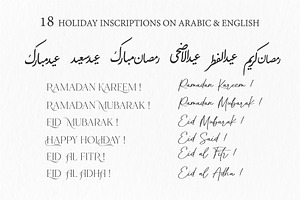 18 HOLIDAY INSCRIPTIONS ON ARABIC & ENGLISH
رمضان كريم عيد الفطر عيد الأضحى رمضان مبارك عيد سعيد عيد مبارك
RAMADAN KAREEM !
Ramadan Kareem !
RAMADAN MUBARAK !
Ramadan Mubarak !
EID MUBARAK !
Eid Mubarak !
HAPPY HOLIDAY !
Eid Said !
EID AL FITR !
Eid al Fitr !
EID AL ADHA !
Eid al Adha !